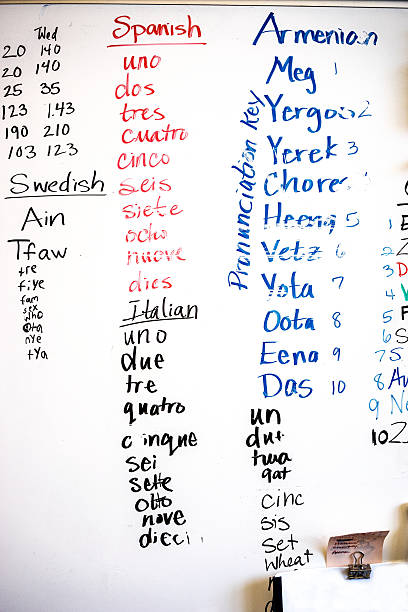 Wed
20 140
20 140
25 35
123 1.43
190 210
103 123
Swedish
Ain
Tfaw
tre
fiye
fam
sex
who
Otta
nye
tya
Spanish
uno
dos
tres
cuatro
cinco
seis
siete
ocho
nuove
dies
Italian
uno
due
tre
quatro
cinque
sei
sette
otto
nove
dieci
Pronunciation Key
Armenian
Meg 1
Yergoos 2
Yerek 3
Chores
Heeng 5
Vetz 6
Yota 7
Oota 8
Eena 9
Das 10
un
dut
twa
qat
cinc
sis
set
wheat
1
2
3
4
5
6
7
8
9
10